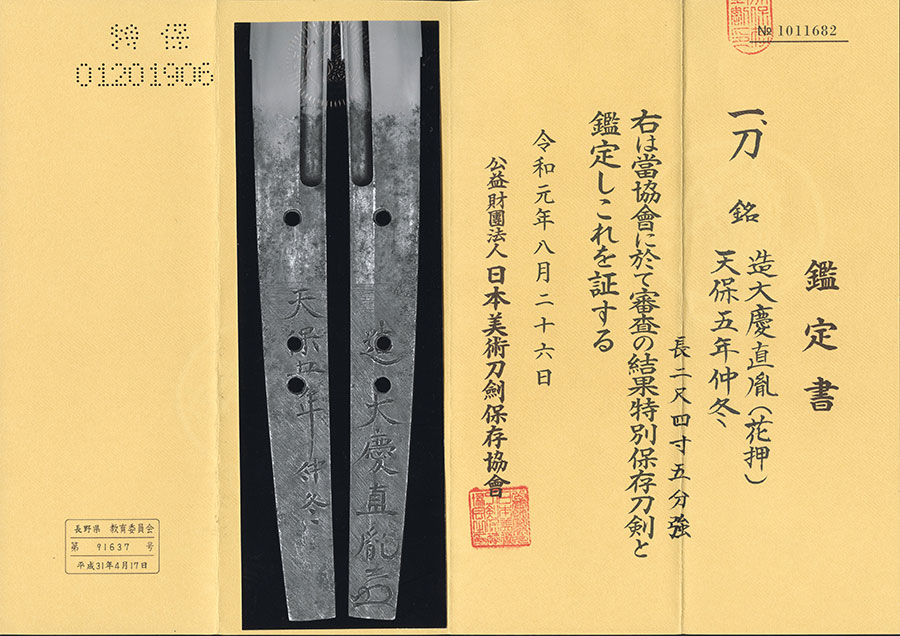 № 1011682
鑑定書
一、刀 銘 造大慶直胤(花押)
天保五年仲冬、
長二尺四寸五分強
右は當協會に於て審査の結果特別保存刀剣と
鑑定しこれを証する
令和元年八月二十六日
公益財團法人 日本美術刀劍保存協會
造大慶直胤
天保五年仲冬
特保
01201906
長野県 教育委員会
第 91637 号
平成31年4月17日